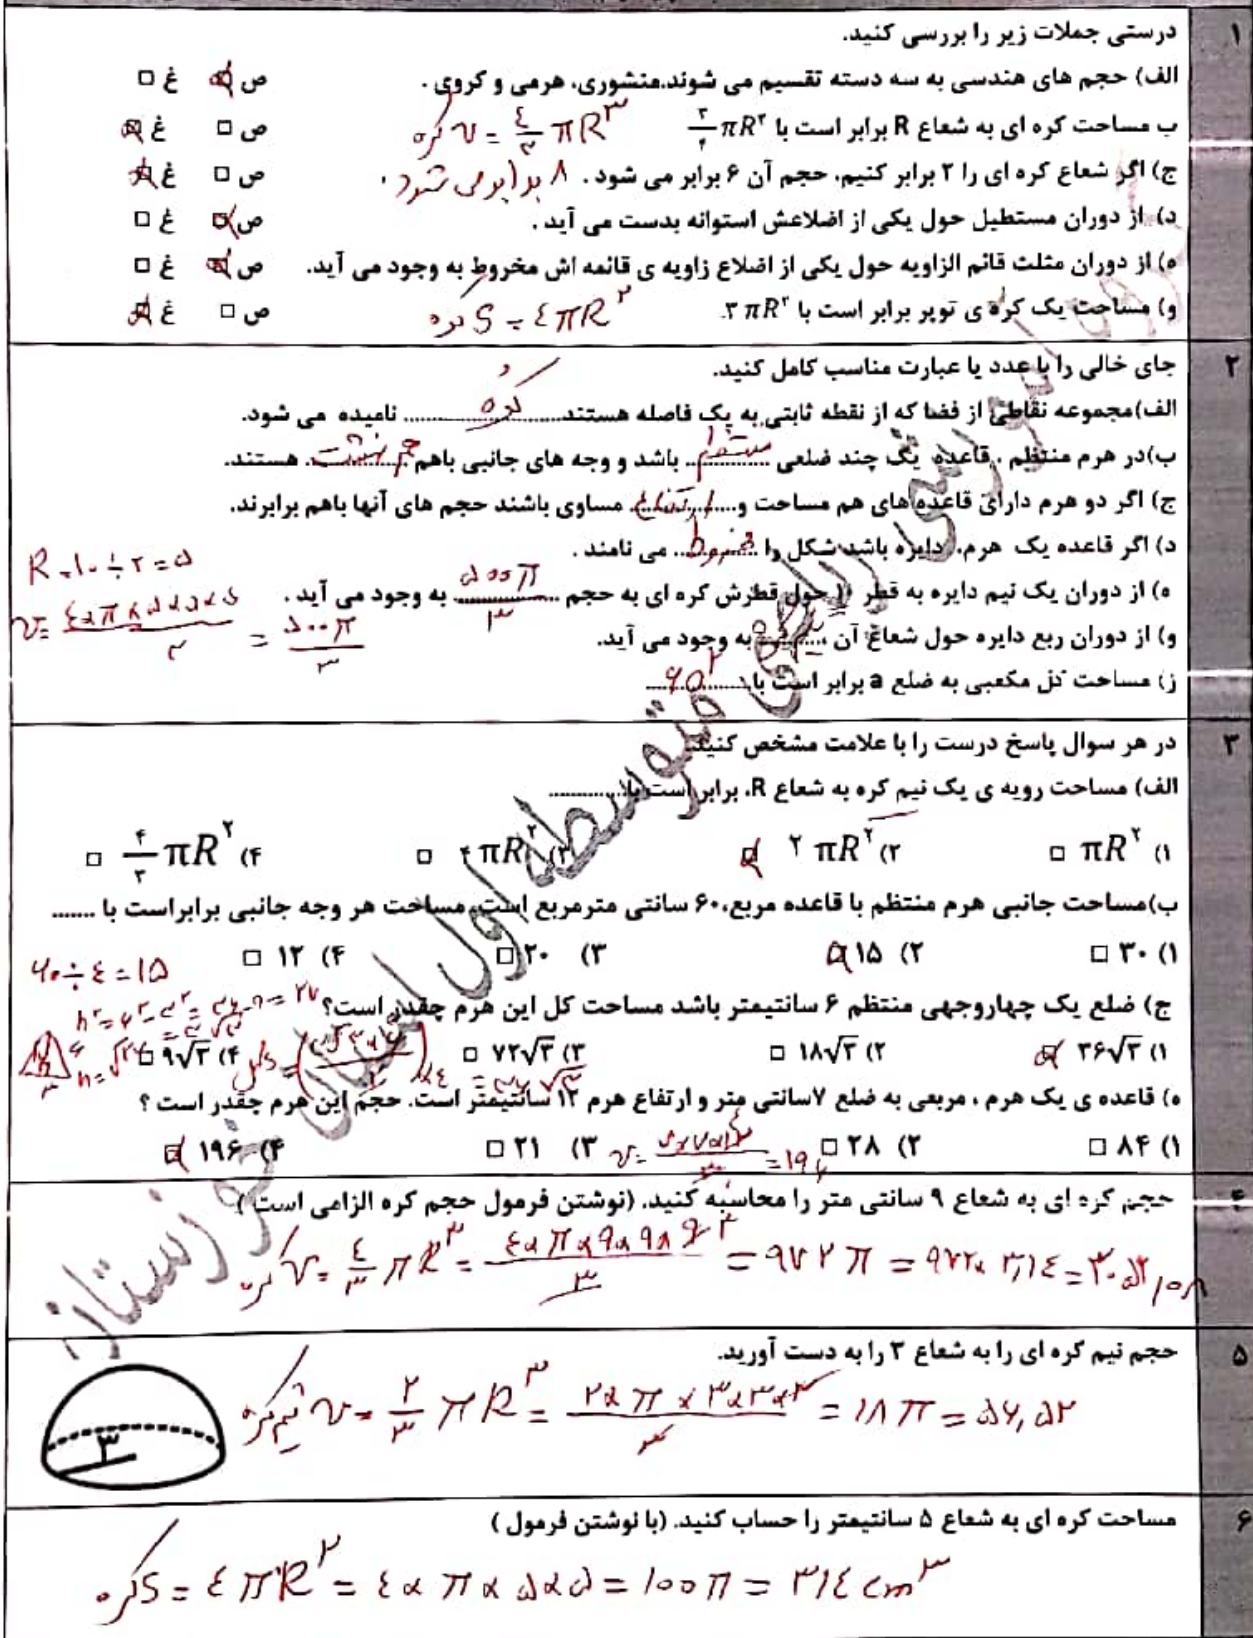 ۱
درستی جملات زیر را بررسی کنید.
الف) حجم های هندسی به سه دسته تقسیم می شوند.منشوری، هرمی و کروی . ص □ غ □
ب مساحت کره ای به شعاع R برابر است با πR² کره V = ٤/۳ πR³ ص □ غ □
ج) اگر شعاع کره ای را ۲ برابر کنیم، حجم آن ۶ برابر می شود . ۸ برابر می شود . ص □ غ □
د) از دوران مستطیل حول یکی از اضلاعش استوانه بدست می آید . ص □ غ □
ه) از دوران مثلث قائم الزاویه حول یکی از اضلاع زاویه ی قائمه اش مخروط به وجود می آید. ص □ غ □
و) مساحت یک کره ی توپر برابر است با ۳πR² کره S = ٤πR² ص □ غ □
۲
جای خالی را با عدد یا عبارت مناسب کامل کنید.
الف)مجموعه نقاطی از فضا که از نقطه ثابتی به یک فاصله هستند...... کره ...... نامیده می شود.
ب)در هرم منتظم ، قاعده یک چند ضلعی ... منتظم ... باشد و وجه های جانبی باهم ... هم نهشت ... هستند.
ج) اگر دو هرم دارای قاعده های هم مساحت و... ارتفاع ... مساوی باشند حجم های آنها باهم برابرند.
د) اگر قاعده یک هرم، دایره باشد شکل را ... مخروط ... می نامند .
R = ۱۰ ÷ ۲ = ۵
ه) از دوران یک نیم دایره به قطر ۱۰ حول قطرش کره ای به حجم ... ۵۰۰π/۳ ... به وجود می آید .
V = ٤×π×۵×۵×۵/۳ = ۵۰۰π/۳
و) از دوران ربع دایره حول شعاع آن ...... به وجود می آید.
ز) مساحت کل مکعبی به ضلع a برابر است با ... ۶a² ...
۳
در هر سوال پاسخ درست را با علامت مشخص کنید.
الف) مساحت رویه ی یک نیم کره به شعاع R، برابر است با............
۱) πR² □ ۲) ۲πR² □ ۳) ۴πR² □ ۴) ۴/۳ πR² □
ب)مساحت جانبی هرم منتظم با قاعده مربع،۶۰ سانتی مترمربع است. مساحت هر وجه جانبی برابراست با .......
۱) ۳۰ □ ۲) ۱۵ □ ۳) ۲۰ □ ۴) ۱۲ □
۶۰ ÷ ٤ = ۱۵
ج) ضلع یک چهاروجهی منتظم ۶ سانتیمتر باشد مساحت کل این هرم چقدر است؟
h² = ۶² - ۳² = ۳۶ - ۹ = ۲۷
۱) ۳۶√۳ □ ۲) ۱۸√۳ □ ۳) ۷۲√۳ □ ۴) ۹√۳ □
= ۳۶√۳
ه) قاعده ی یک هرم ، مربعی به ضلع ۷سانتی متر و ارتفاع هرم ۱۲ سانتیمتر است. حجم این هرم چقدر است ؟
۱) ۸۴ □ ۲) ۲۸ □ ۳) ۲۱ □ ۴) ۱۹۶ □
V = ۷×۷×۱۲/۳ = ۱۹۶
۴
حجم کره ای به شعاع ۹ سانتی متر را محاسبه کنید. (نوشتن فرمول حجم کره الزامی است )
کره V = ٤/۳ πR³ = ٤×π×۹×۹×۹/۳ = ۹۷۲π = ۹۷۲×۳٫۱٤ = ۳۰۵۲٫۰۸
۵
حجم نیم کره ای را به شعاع ۳ را به دست آورید.
نیم کره V = ۲/۳ πR³ = ۲×π×۳×۳×۳/۳ = ۱۸π = ۵۶,۵۲
۳
۶
مساحت کره ای به شعاع ۵ سانتیمتر را حساب کنید. (با نوشتن فرمول )
کره S = ٤πR² = ٤×π×۵×۵ = ۱۰۰π = ۳۱٤ cm³
ریاضی متوسطه اول استان خوزستان